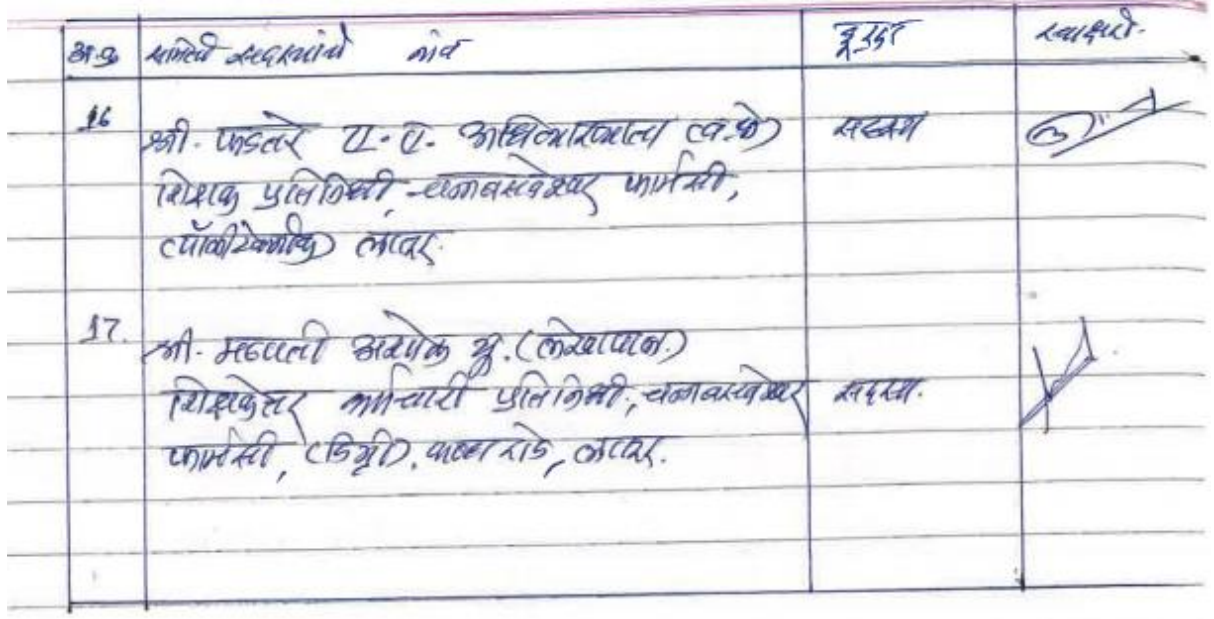 अ.क्र समिती सदस्यांचे नांव हुद्दा स्वाक्षरी.
16 श्री. फडतरे ए. ए. अधिव्याख्याता सदस्य
शिक्षक प्रतिनिधी, चन्नबसवेश्वर फार्मसी,
(पॉलीटेक्नीक) लातूर.
17. श्री. महापाती अशोक गु. (लेखापाल.)
शिक्षकेत्तर कर्मचारी प्रतिनिधी, चन्नबसवेश्वर सदस्य.
फार्मसी, (डिग्री), कव्हा रोड, लातूर.